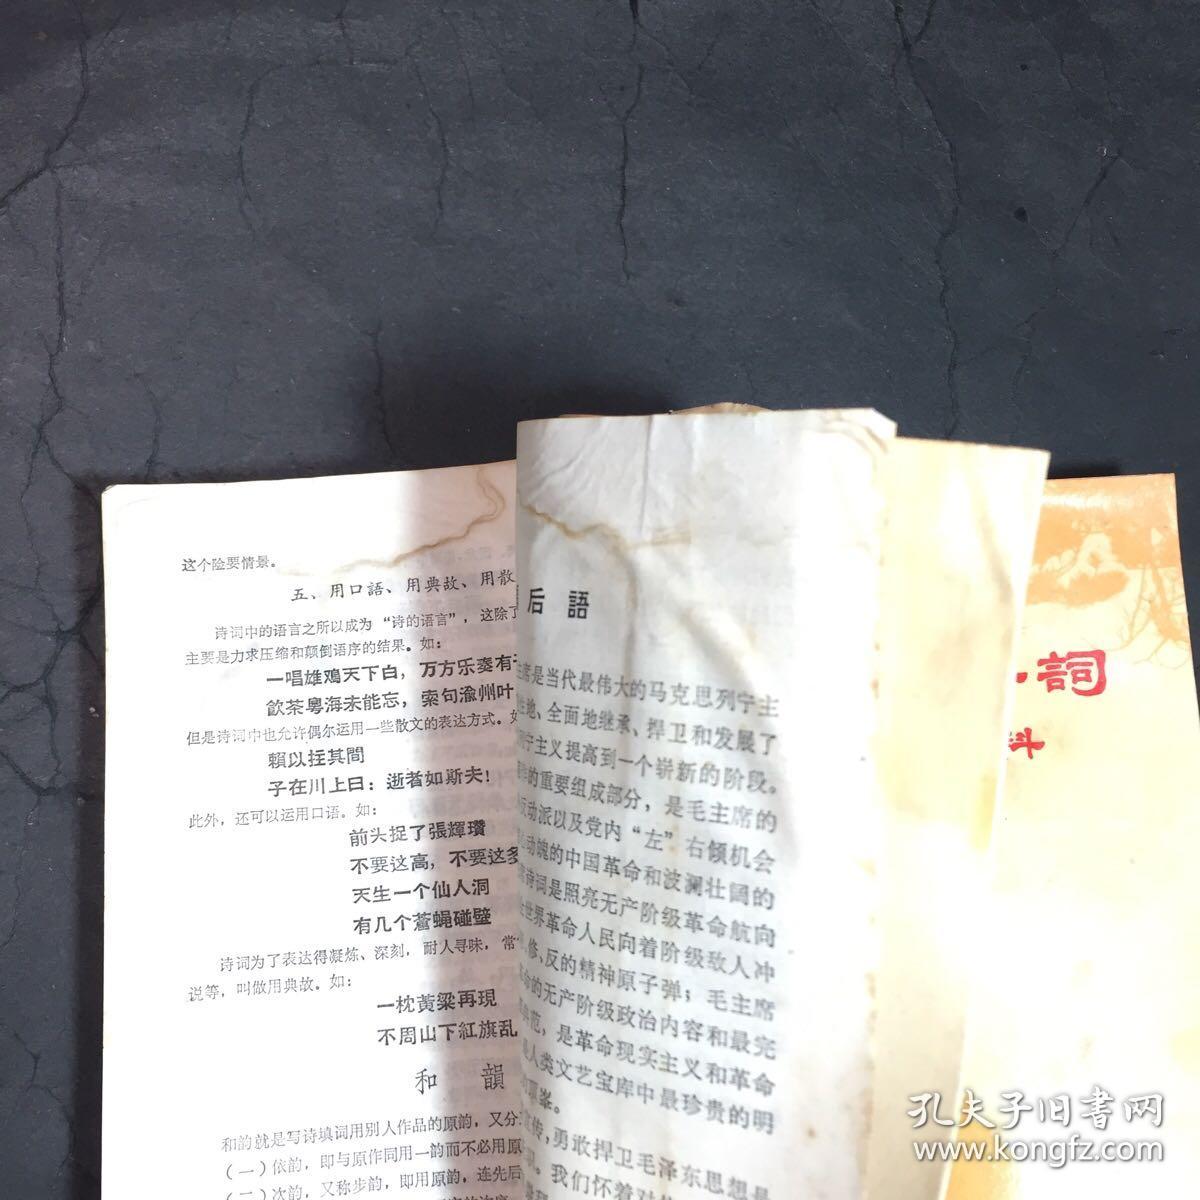 这个险要情景。
五、用口語、用典故、用散
诗词中的语言之所以成为“诗的语言”，这除了
主要是力求压缩和颠倒语序的结果。如：
一唱雄鸡天下白，万方乐奏有于
飮茶粵海未能忘，索句渝州叶
但是诗词中也允许偶尔运用一些散文的表达方式。如
賴以拄其間
子在川上曰：逝者如斯夫！
此外，还可以运用口语。如：
前头捉了張輝瓚
不要这高，不要这多
天生一个仙人洞
有几个蒼蝇碰壁
诗词为了表达得凝炼、深刻，耐人寻味，常
说等，叫做用典故。如：
一枕黃粱再現
不周山下紅旗乱
和韻
和韵就是写诗填词用别人作品的原韵，又分
（一）依韵，即与原作同用一韵而不必用原
（二）次韵，又称步韵，即用原韵，连先后
后語
主席是当代最伟大的马克思列宁主
性地、全面地继承、捍卫和发展了
列宁主义提高到一个崭新的阶段。
的重要组成部分，是毛主席的
反动派以及党内“左”右倾机会
动魄的中国革命和波澜壮阔的
席诗词是照亮无产阶级革命航向
世界革命人民向着阶级敌人冲
、修、反的精神原子弹；毛主席
命的无产阶级政治内容和最完
典范，是革命现实主义和革命
是人类文艺宝库中最珍贵的明
峯。
宣传，勇敢捍卫毛泽东思想是
。我们怀着对
詞
料
孔夫子旧书网
www.kongfz.com